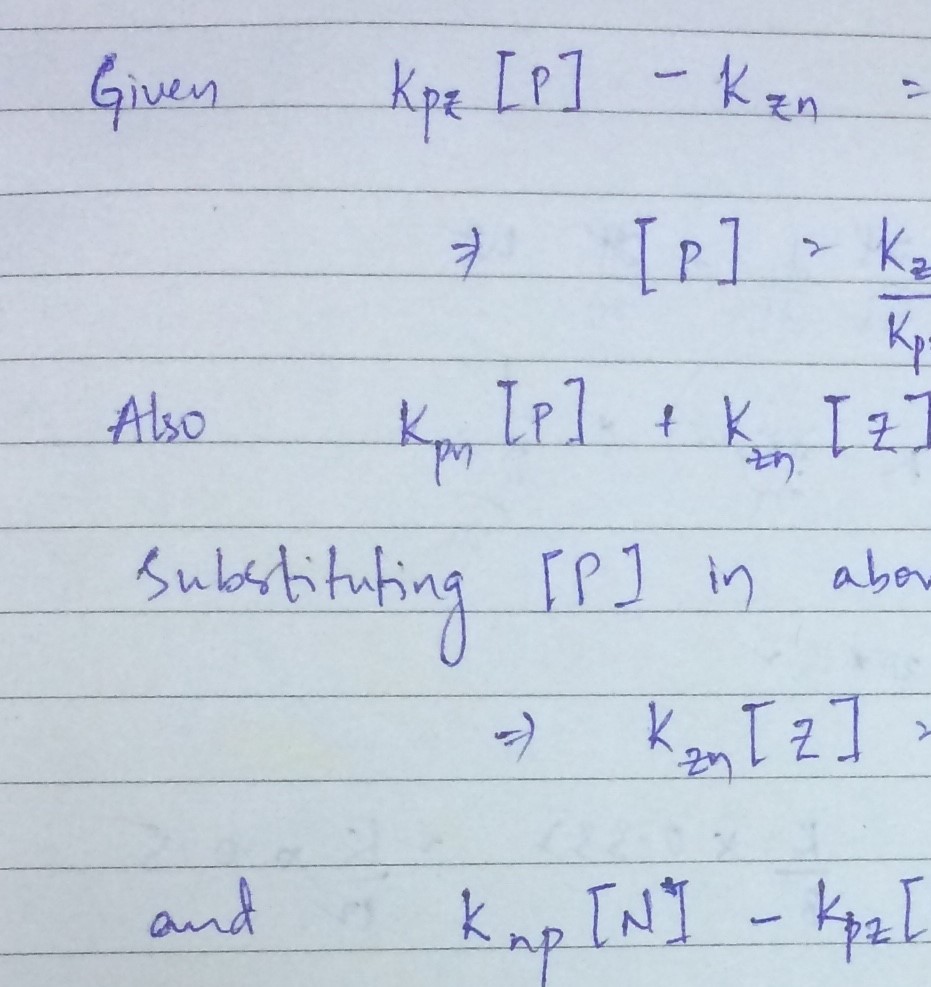 Given Kpz [P] - Kzn =
⇒ [P] = Kz
Kp
Also Kpn [P] + Kzn [Z]
Substituting [P] in abov
⇒ Kzn [Z] =
and Knp [N*] - Kpz [